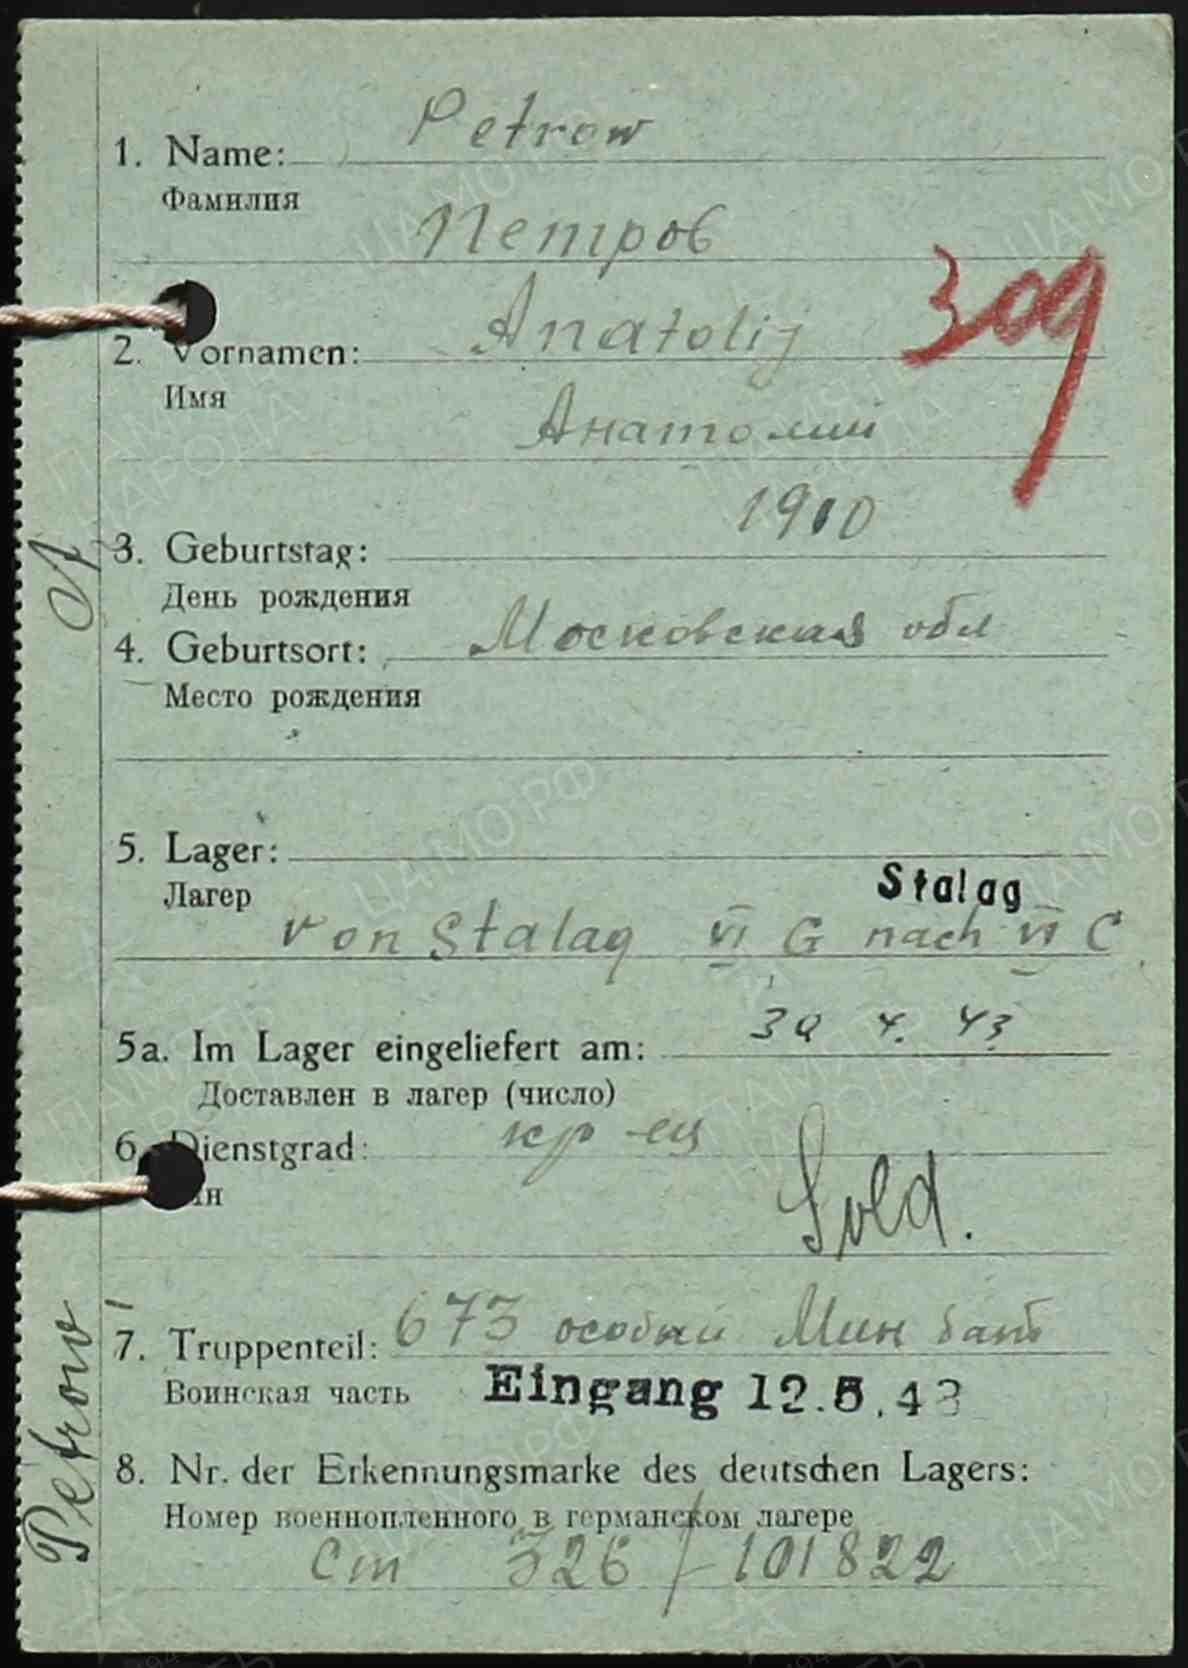 1. Name: Petrow
Фамилия
Петров
309
2. Vornamen: Anatolij
Имя
Анатолий
1910
3. Geburtstag:
День рождения
4. Geburtsort: Московская обл
Место рождения
5. Lager:
Лагер
Stalag
von Stalag VI G nach VI C
5a. Im Lager eingeliefert am: 30 4. 43
Доставлен в лагер (число)
6. Dienstgrad: кр-ец
ин
Sold.
7. Truppenteil: 673 особый Мин бат
Воинская часть
Eingang 12.5.43
8. Nr. der Erkennungsmarke des deutschen Lagers:
Номер военнопленного в германском лагере
ст 326 / 101822
A
Petrow
ЦАМО РФ
ПАМЯТЬ
НАРОДА